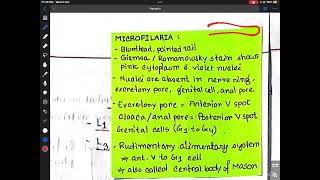 MICROFILARIA :
- Blunthead, pointed tail
- Giemsa / Romanowsky stain shows
pink cytoplasm & violet nuclei
- Nuclei are absent in nerve ring,
excretory pore, genital cell, anal pore
- Excretory pore = Anterior V spot
cloaca/anal pore = Posterior V spot
Genital cells (G1 to G4)
- Rudimentary alimentary system
* ant. V to G1 cell
* also called central body of Mason
- L1
- L3